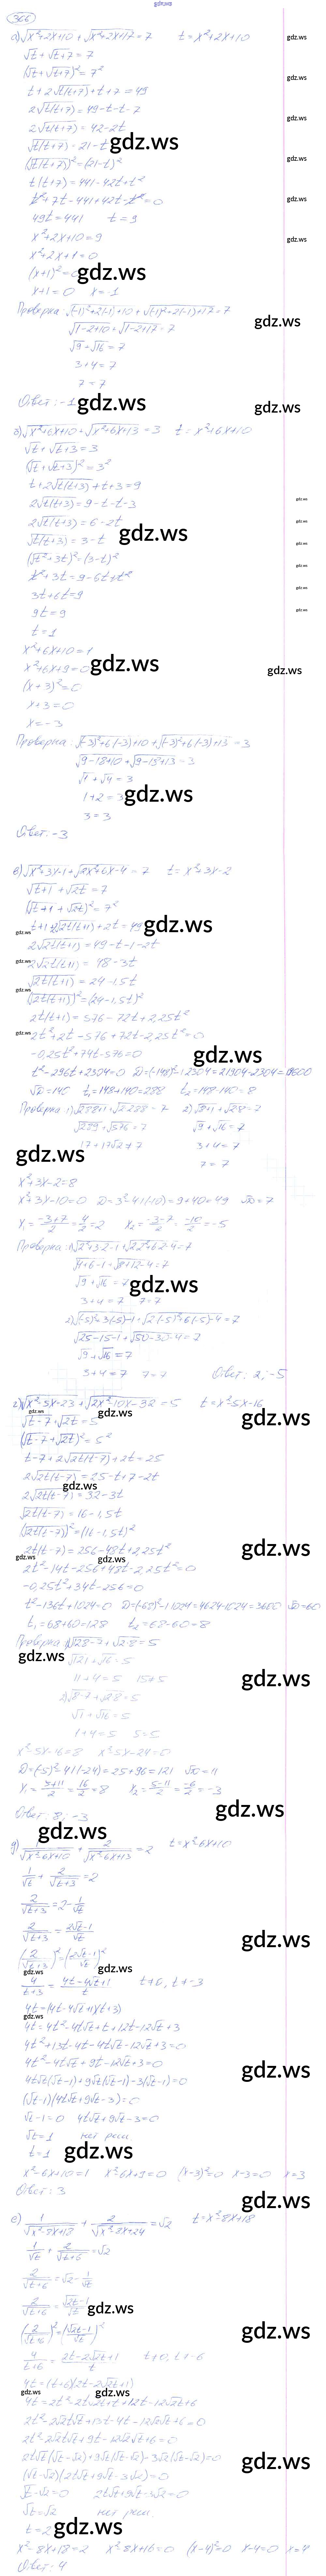 gdz.ws
366
а) √x²+2x+10 + √x²+2x+17 = 7    t = x²+2x+10
√t + √t+7 = 7
(√t + √t+7)² = 7²
t + 2√t(t+7) + t + 7 = 49
2√t(t+7) = 49-t-t-7
2√t(t+7) = 42-2t
√t(t+7) = 21-t
(√t(t+7))² = (21-t)²
t(t+7) = 441-42t+t²
t²+7t-441+42t-t²=0
49t=441    t=9
x²+2x+10=9
x²+2x+1=0
(x+1)²=0
x+1=0    x=-1
Проверка √(-1)²+2(-1)+10 + √(-1)²+2(-1)+17 = 7
√1-2+10 + √1-2+17 = 7
√9 + √16 = 7
3+4=7
7=7
Ответ: -1
б) √x²+6x+10 + √x²+6x+13 = 3    t = x²+6x+10
√t + √t+3 = 3
(√t + √t+3)² = 3²
t+2√t(t+3)+t+3=9
2√t(t+3) = 9-t-t-3
2√t(t+3) = 6-2t
√t(t+3) = 3-t
(√t²+3t)² = (3-t)²
t²+3t=9-6t+t²
3t+6t=9
9t=9
t=1
x²+6x+10=1
x²+6x+9=0
(x+3)²=0
x+3=0
x=-3
Проверка: √(-3)²+6(-3)+10 + √(-3)²+6(-3)+13 = 3
√9-18+10 + √9-18+13 = 3
√1 + √4 = 3
1+2=3
3=3
Ответ: -3
в) √x²+3x-1 + √2x²+6x-4 = 7    t = x²+3x-2
√t+1 + √2t = 7
(√t+1 + √2t)² = 7²
t+1+2√2t(t+1)+2t=49
2√2t(t+1) = 49-t-1-2t
2√2t(t+1) = 48-3t
√2t(t+1) = 24-1,5t
(√2t(t+1))² = (24-1,5t)²
2t(t+1) = 576-72t+2,25t²
2t²+2t-576+72t-2,25t²=0
-0,25t²+74t-576=0
√D=140    t₁=148+140=288    t₂=148-140=8
Проверка 1) √288+1 + √2·288 = 7    2) √8+1 + √2·8 = 7
√289 + √576 = 7    √9 + √16 = 7
3+4=7
7=7
x²+3x-2=8
x²+3x-10=0    D=3²-4·1(-10)=9+40=49    √D=7
x₁=(-3+7)/2=4/2=2    x₂=(-3-7)/2=-10/2=-5
Проверка: 1) √2²+3·2-1 + √2·2²+6·2-4 = 7
√4+6-1 + √8+12-4 = 7
√9 + √16 = 7
3+4=7    7=7
2) √(-5)²+3(-5)-1 + √2(-5)²+6(-5)-4 = 7
√25-15-1 + √50-30-4 = 7
√9 + √16 = 7
3+4=7    7=7
Ответ: 2, -5
г) √x²-5x-23 + √2x²-10x-32 = 5    t = x²-5x-16
√t-7 + √2t = 5
(√t-7 + √2t)² = 5²
t-7+2√2t(t-7)+2t=25
2√2t(t-7) = 25-t+7-2t
2√2t(t-7) = 32-3t
√2t(t-7) = 16-1,5t
(√2t(t-7))² = (16-1,5t)²
2t(t-7) = 256-48t+2,25t²
2t²-14t-256+48t-2,25t²=0
-0,25t²+34t-256=0
t²-136t+1024=0    D=(-68)²-1024=4624-1024=3600    √D=60
t₁=68+60=128    t₂=68-60=8
Проверка 1) √128-7 + √2·128 = 5
11+4=5    15≠5
2) √8-7 + √2·8 = 5
√1 + √16 = 5
1+4=5    5=5
x²-5x-16=8    x²-5x-24=0
D=(-5)²-4·1(-24)=25+96=121    √D=11
x₁=(5+11)/2=16/2=8    x₂=(5-11)/2=-6/2=-3
Ответ: 8, -3
д) 1/√x²-6x+10 + 2/√x²-6x+13 = 2    t = x²-6x+10
1/√t + 2/√t+3 = 2
2/√t+3 = 2-1/√t
2/√t+3 = (2√t-1)/√t
(2/√t+3)² = ((2√t-1)/√t)²
4/(t+3) = (4t-4√t+1)/t    t≠0, t≠-3
4t=(4t-4√t+1)(t+3)
4t=4t²-4t√t+t+12t-12√t+3
4t²+13t-4t-4t√t-12√t+3=0
4t²-4t√t+9t-12√t+3=0
4t√t(√t-1)+9√t(√t-1)-3(√t-1)=0
(√t-1)(4t√t+9√t-3)=0
√t-1=0    4t√t+9√t-3=0
√t=1    нет реш
t=1
x²-6x+10=1    x²-6x+9=0    (x-3)²=0    x-3=0    x=3
Ответ: 3
е) 1/√x²-8x+18 + 2/√x²-8x+24 = √2    t = x²-8x+18
1/√t + 2/√t+6 = √2
2/√t+6 = √2-1/√t
2/√t+6 = (√2t-1)/√t
(2/√t+6)² = ((√2t-1)/√t)²
4/(t+6) = (2t-2√2t+1)/t    t≠0, t≠-6
4t=(t+6)(2t-2√2t+1)
2t²-2√2t√t+13t-4t-12√2√t+6=0
2t²-2√2t√t+9t-12√2√t+6=0
2t√t(√t-√2)+9√t(√t-√2)-3√2(√t-√2)=0
(√t-√2)(2t√t+9√t-3√2)=0
√t-√2=0    2t√t+9√t-3√2=0
√t=√2    нет реш
t=2
x²-8x+18=2    x²-8x+16=0    (x-4)²=0    x-4=0    x=4
Ответ: 4